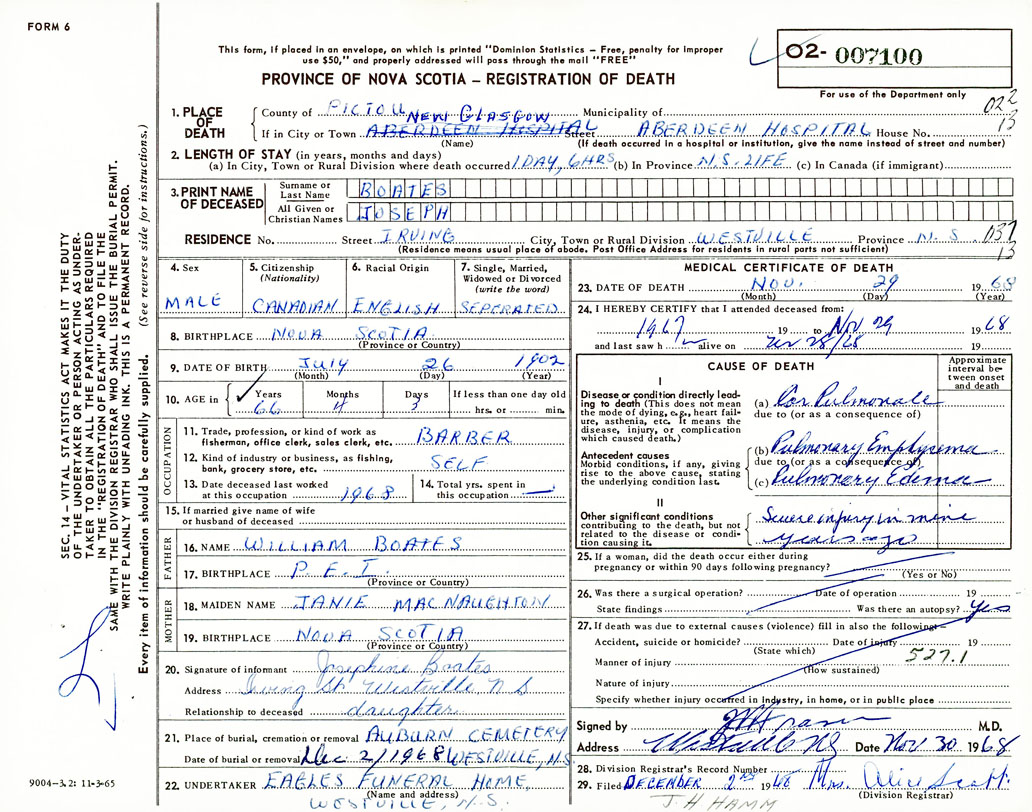 FORM 6
This form, if placed in an envelope, on which is printed "Dominion Statistics – Free, penalty for improper
use $50," and properly addressed will pass through the mail "FREE"
PROVINCE OF NOVA SCOTIA – REGISTRATION OF DEATH
02- 007100
For use of the Department only
022
13
1. PLACE OF DEATH
County of PICTOU Municipality of
NEW GLASGOW
If in City or Town ABERDEEN HOSPITAL Street ABERDEEN HOSPITAL House No.
(Name) (If death occurred in a hospital or institution, give the name instead of street and number)
2. LENGTH OF STAY (in years, months and days)
(a) In City, Town or Rural Division where death occurred 1 DAY, 6 HRS (b) In Province N.S. LIFE (c) In Canada (if immigrant)
3. PRINT NAME OF DECEASED
Surname or Last Name BOATES
All Given or Christian Names JOSEPH
RESIDENCE No. Street IRVING City, Town or Rural Division WESTVILLE Province N.S. 137
(Residence means usual place of abode. Post Office Address for residents in rural parts not sufficient) 13
4. Sex MALE
5. Citizenship (Nationality) CANADIAN
6. Racial Origin ENGLISH
7. Single, Married, Widowed or Divorced (write the word) SEPERATED
8. BIRTHPLACE NOVA SCOTIA
(Province or Country)
9. DATE OF BIRTH July 26 1902
(Month) (Day) (Year)
10. AGE in Years 66 Months 4 Days 3 If less than one day old hrs. or min.
OCCUPATION
11. Trade, profession, or kind of work as
fisherman, office clerk, sales clerk, etc. BARBER
12. Kind of industry or business, as fishing,
bank, grocery store, etc. SELF
13. Date deceased last worked
at this occupation 1968
14. Total yrs. spent in
this occupation
15. If married give name of wife
or husband of deceased
FATHER
16. NAME WILLIAM BOATES
17. BIRTHPLACE P.E.I.
(Province or Country)
MOTHER
18. MAIDEN NAME JANIE MACNAUGHTON
19. BIRTHPLACE NOVA SCOTIA
(Province or Country)
20. Signature of informant Josephine Boates
Address Irving St Westville N S
Relationship to deceased daughter
21. Place of burial, cremation or removal AUBURN CEMETERY
Date of burial or removal Dec 2/1968 WESTVILLE, N.S.
22. UNDERTAKER EAGLES FUNERAL HOME
(Name and address)
WESTVILLE, N.S.
MEDICAL CERTIFICATE OF DEATH
23. DATE OF DEATH Nov. 29 1968
(Month) (Day) (Year)
24. I HEREBY CERTIFY that I attended deceased from:
1967 19 to Nov 29 1968
and last saw h alive on 19
CAUSE OF DEATH
Approximate interval between onset and death
I
Disease or condition directly leading to death (This does not mean
the mode of dying, e.g., heart failure, asthenia, etc. It means the
disease, injury, or complication
which caused death.)
(a) Cor Pulmonale
due to (or as a consequence of)
Antecedent causes
Morbid conditions, if any, giving
rise to the above cause, stating
the underlying condition last.
(b) Pulmonary Emphysema
due to (or as a consequence of)
(c) Pulmonary Edema
II
Other significant conditions
contributing to the death, but not
related to the disease or condition causing it.
Severe injury in mine
years ago
25. If a woman, did the death occur either during
pregnancy or within 90 days following pregnancy?
(Yes or No)
26. Was there a surgical operation? Date of operation 19
State findings Was there an autopsy? yes
27. If death was due to external causes (violence) fill in also the following:
Accident, suicide or homicide? Date of injury 19
(State which) 527.1
Manner of injury
(How sustained)
Nature of injury
Specify whether injury occurred in Industry, in home, or in public place
Signed by M.D.
Address Westville NS Date Nov. 30 1968
28. Division Registrar's Record Number
29. Filed DECEMBER 2nd 1968 Mrs. Alice Scott
(Division Registrar)
J H HAMM
SEC. 14 – VITAL STATISTICS ACT MAKES IT THE DUTY
OF THE UNDERTAKER OR PERSON ACTING AS UNDER-
TAKER TO OBTAIN ALL THE PARTICULARS REQUIRED
IN THE "REGISTRATION OF DEATH" AND TO FILE THE
SAME WITH THE DIVISION REGISTRAR WHO SHALL ISSUE THE BURIAL PERMIT.
WRITE PLAINLY WITH UNFADING INK. THIS IS A PERMANENT RECORD.
Every item of information should be carefully supplied. (See reverse side for instructions.)
9004-3.2: 11-3-65